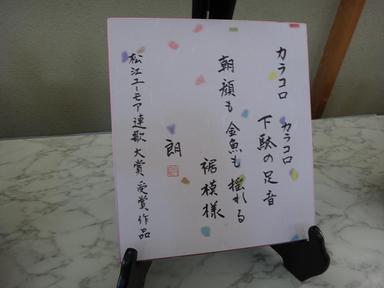 カラコロ
カラコロ
下駄の足音
朝顔も金魚も揺れる
裾模様
朗
松江ユーモア連歌大賞受賞作品